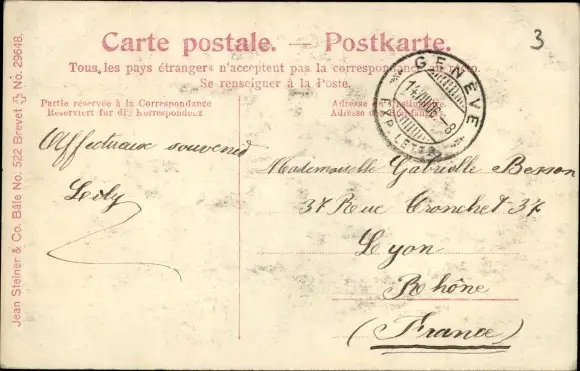 Carte postale. — Postkarte.
3
Tous, les pays étrangers n'acceptent pas la correspondance
Se renseigner à la Poste.
Partie réservée à la Correspondance
Reserviert für die Korrespondenz
Adresse
Adresse des
GENÈVE
EXP. LETTR.
Affectueux souvenir
Loly
Mademoiselle Gabrielle Besson
37 Rue Tronchet 37
Lyon
Rhône
(France)
Jean Steiner & Co. Bâle No. 522 Brevet No. 29648.